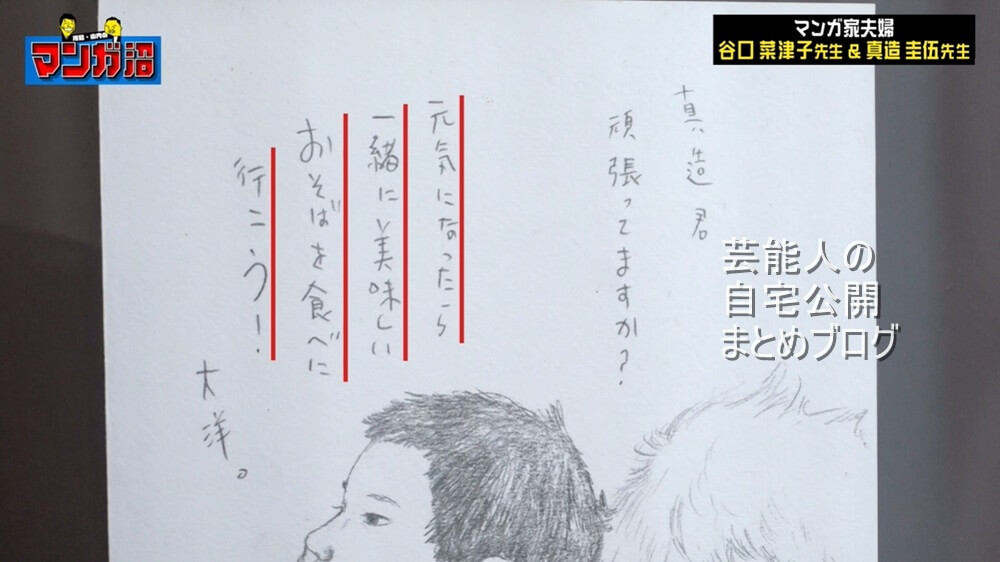 マンガ沼
マンガ家夫婦
谷口 菜津子先生 & 真造 圭伍先生
真造君
頑張ってますか?
元気になったら
一緒に美味しい
おそばを食べに
行こう!
大洋。
芸能人の
自宅公開
まとめブログ